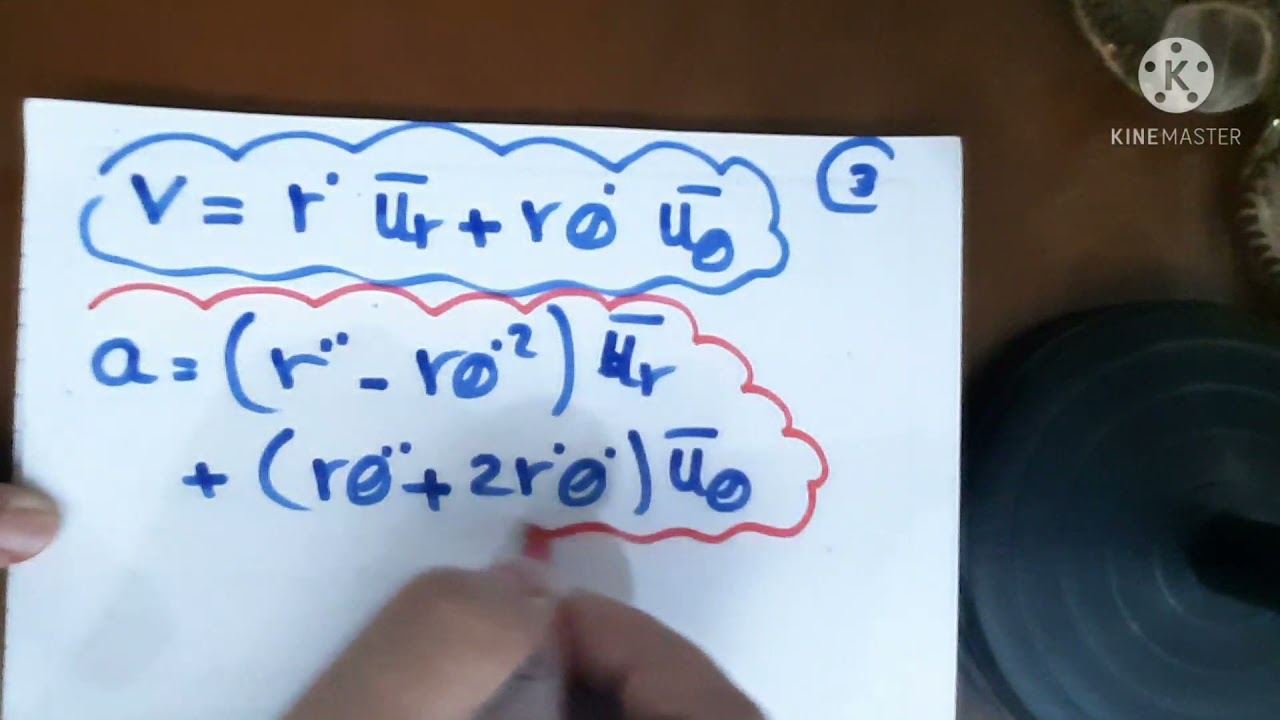 ③
V = r˙ u̅r + rθ˙ u̅θ
a = (r¨ - rθ˙²) u̅r
+ (rθ¨ + 2r˙θ˙) u̅θ
K
KINEMASTER